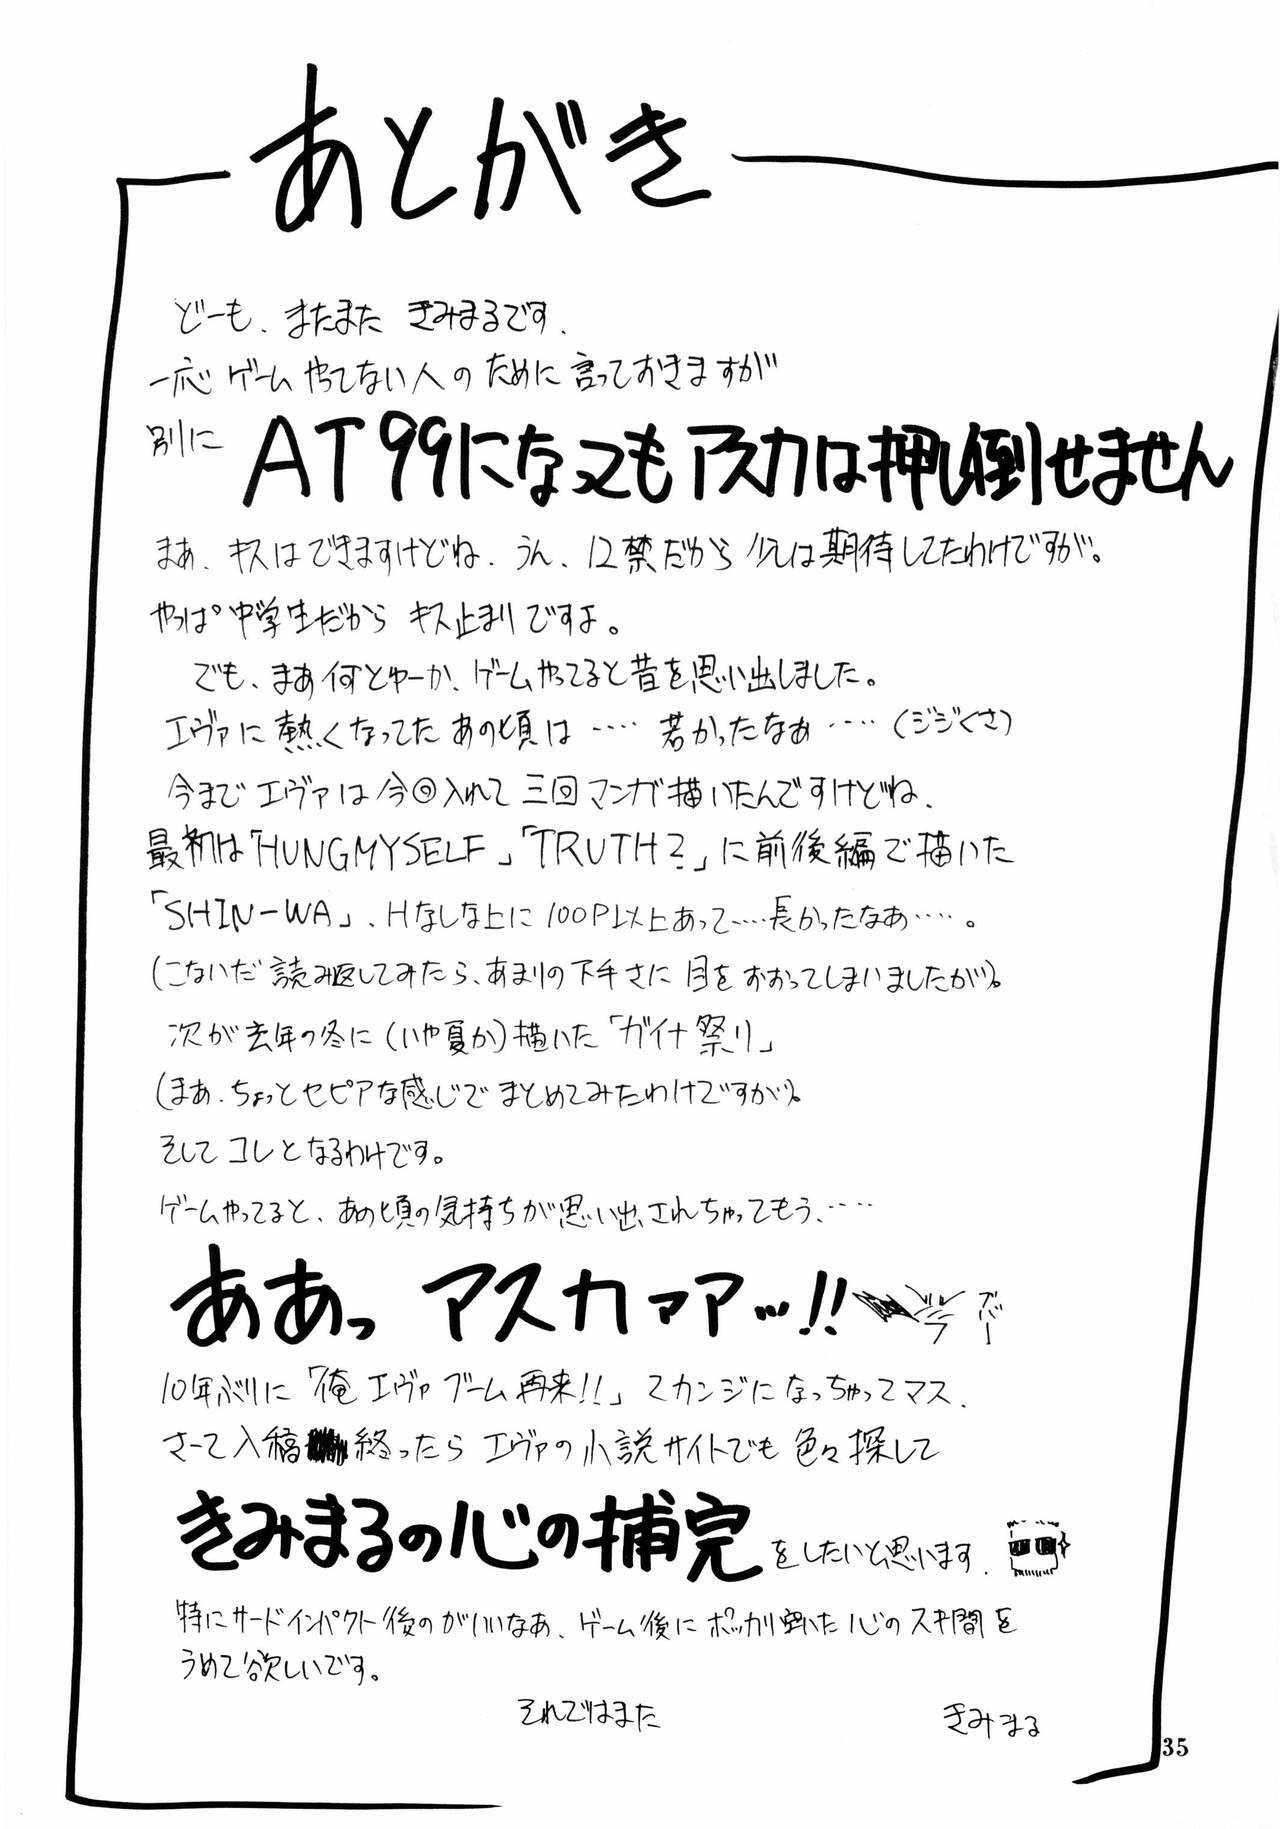 あとがき
どーも、またまた きみまるです、
一応 ゲームやってない人のために言っておきますが
別に AT99になってもアスカは押し倒せません
まあ、キスはできますけどね、うん、12禁だから少しは期待してたわけですが。
やっぱ中学生だから キス止まりですよ。
でも、まあ何とゆーか、ゲームやってると昔を思い出しました。
エヴァに熱くなってた あの頃は‥‥ 若かったなぁ‥‥(ジジくさ)
今まで エヴァは今回入れて 三回マンガ描いたんですけどね、
最初は「HUNGMYSELF」「TRUTH?」に前後編で描いた
「SHIN-WA」、Hなしな上に 100P以上あって‥‥長かったなあ‥‥。
(こないだ 読み返してみたら、あまりの下手さに 目をおおってしまいましたが)。
次が去年の冬に(いや夏か)描いた「ガイナ祭り」
(まあ、ちょっとセピアな感じで まとめてみたわけですが)。
そして コレとなるわけです。
ゲームやってると、あの頃の気持ちが思い出されちゃってもう、‥‥
ああっ アスカァァッ!!
10年ぶりに「俺 エヴァ ブーム 再来!!」てカンジになっちゃってマス、
さーて 入稿 終ったら エヴァの小説サイトでも 色々探して
きみまるの心の補完 をしたいと思います、
特にサードインパクト後のがいいなあ、ゲーム後にポッカリ空いた 心のスキ間を
うめて欲しいです。
それではまた
きみまる
35